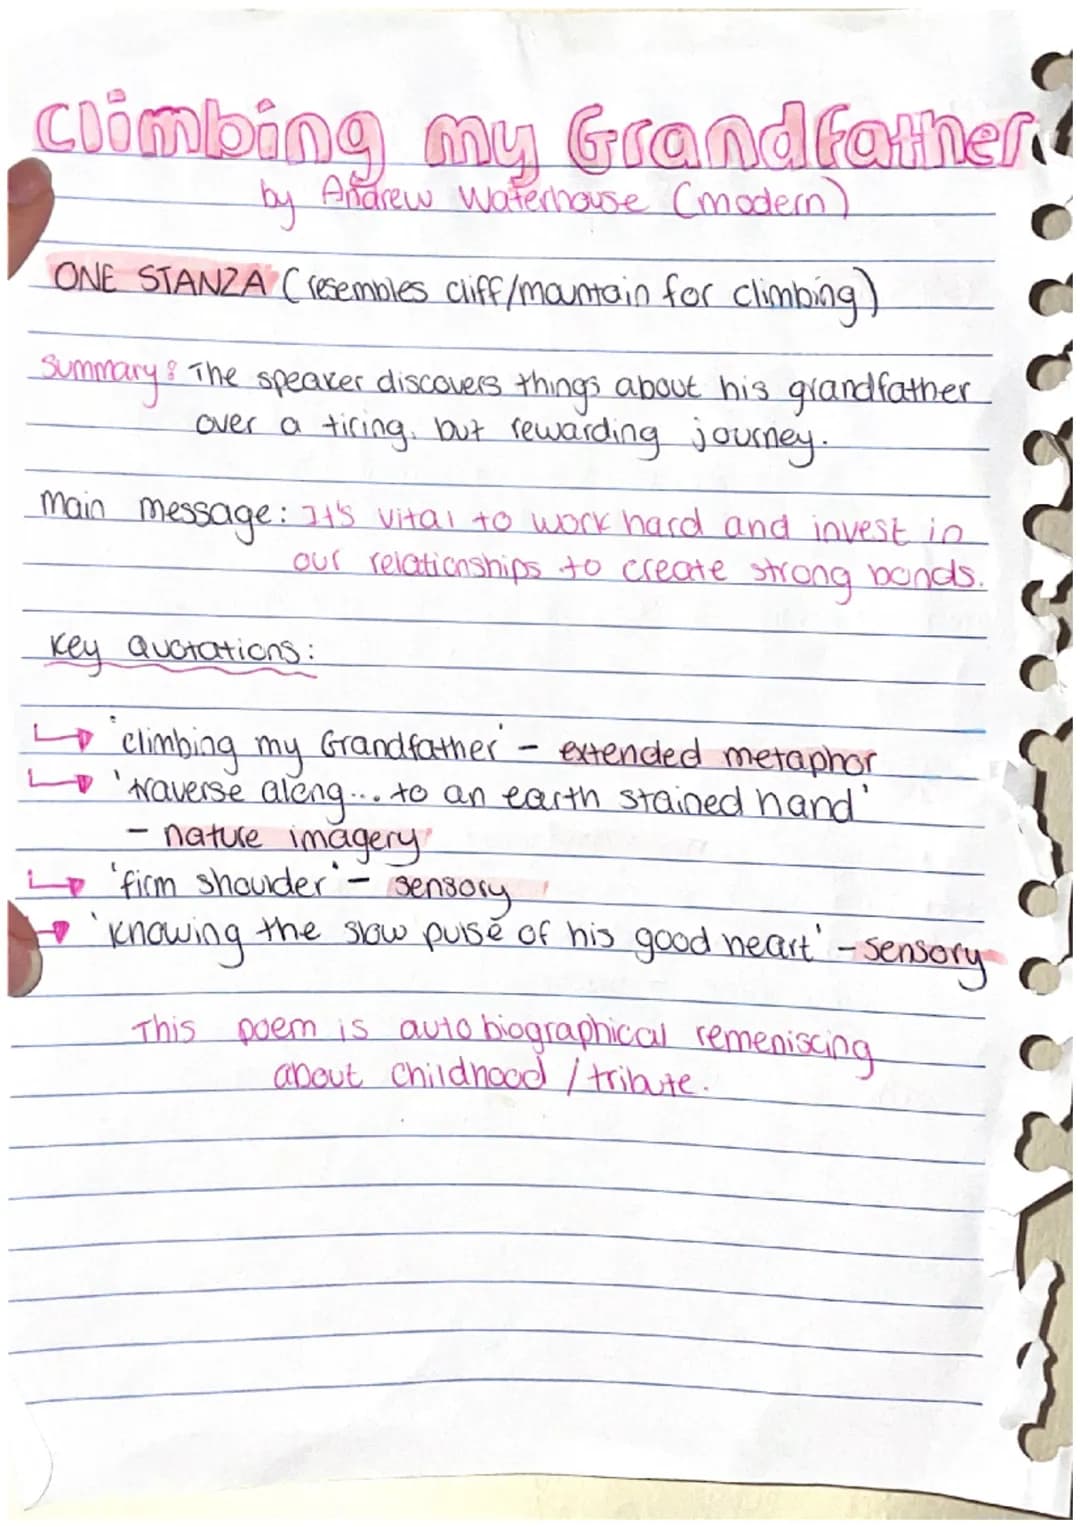 Climbing my Grandfather
by Andrew Waterhouse (modern)
ONE STANZA (resembles cliff/mountain for climbing)
Summary: The speaker discovers things about his grandfather
over a tiring, but rewarding journey.
Main message: It's vital to work hard and invest in
our relationships to create strong bonds.
Key Quotations:
'climbing my Grandfather' - extended metaphor
'traverse along... to an earth stained hand'
- nature imagery
'firm shoulder' - sensory
'knowing the slow pulse of his good heart' - sensory
This poem is autobiographical remeniscing
about childhood / tribute.